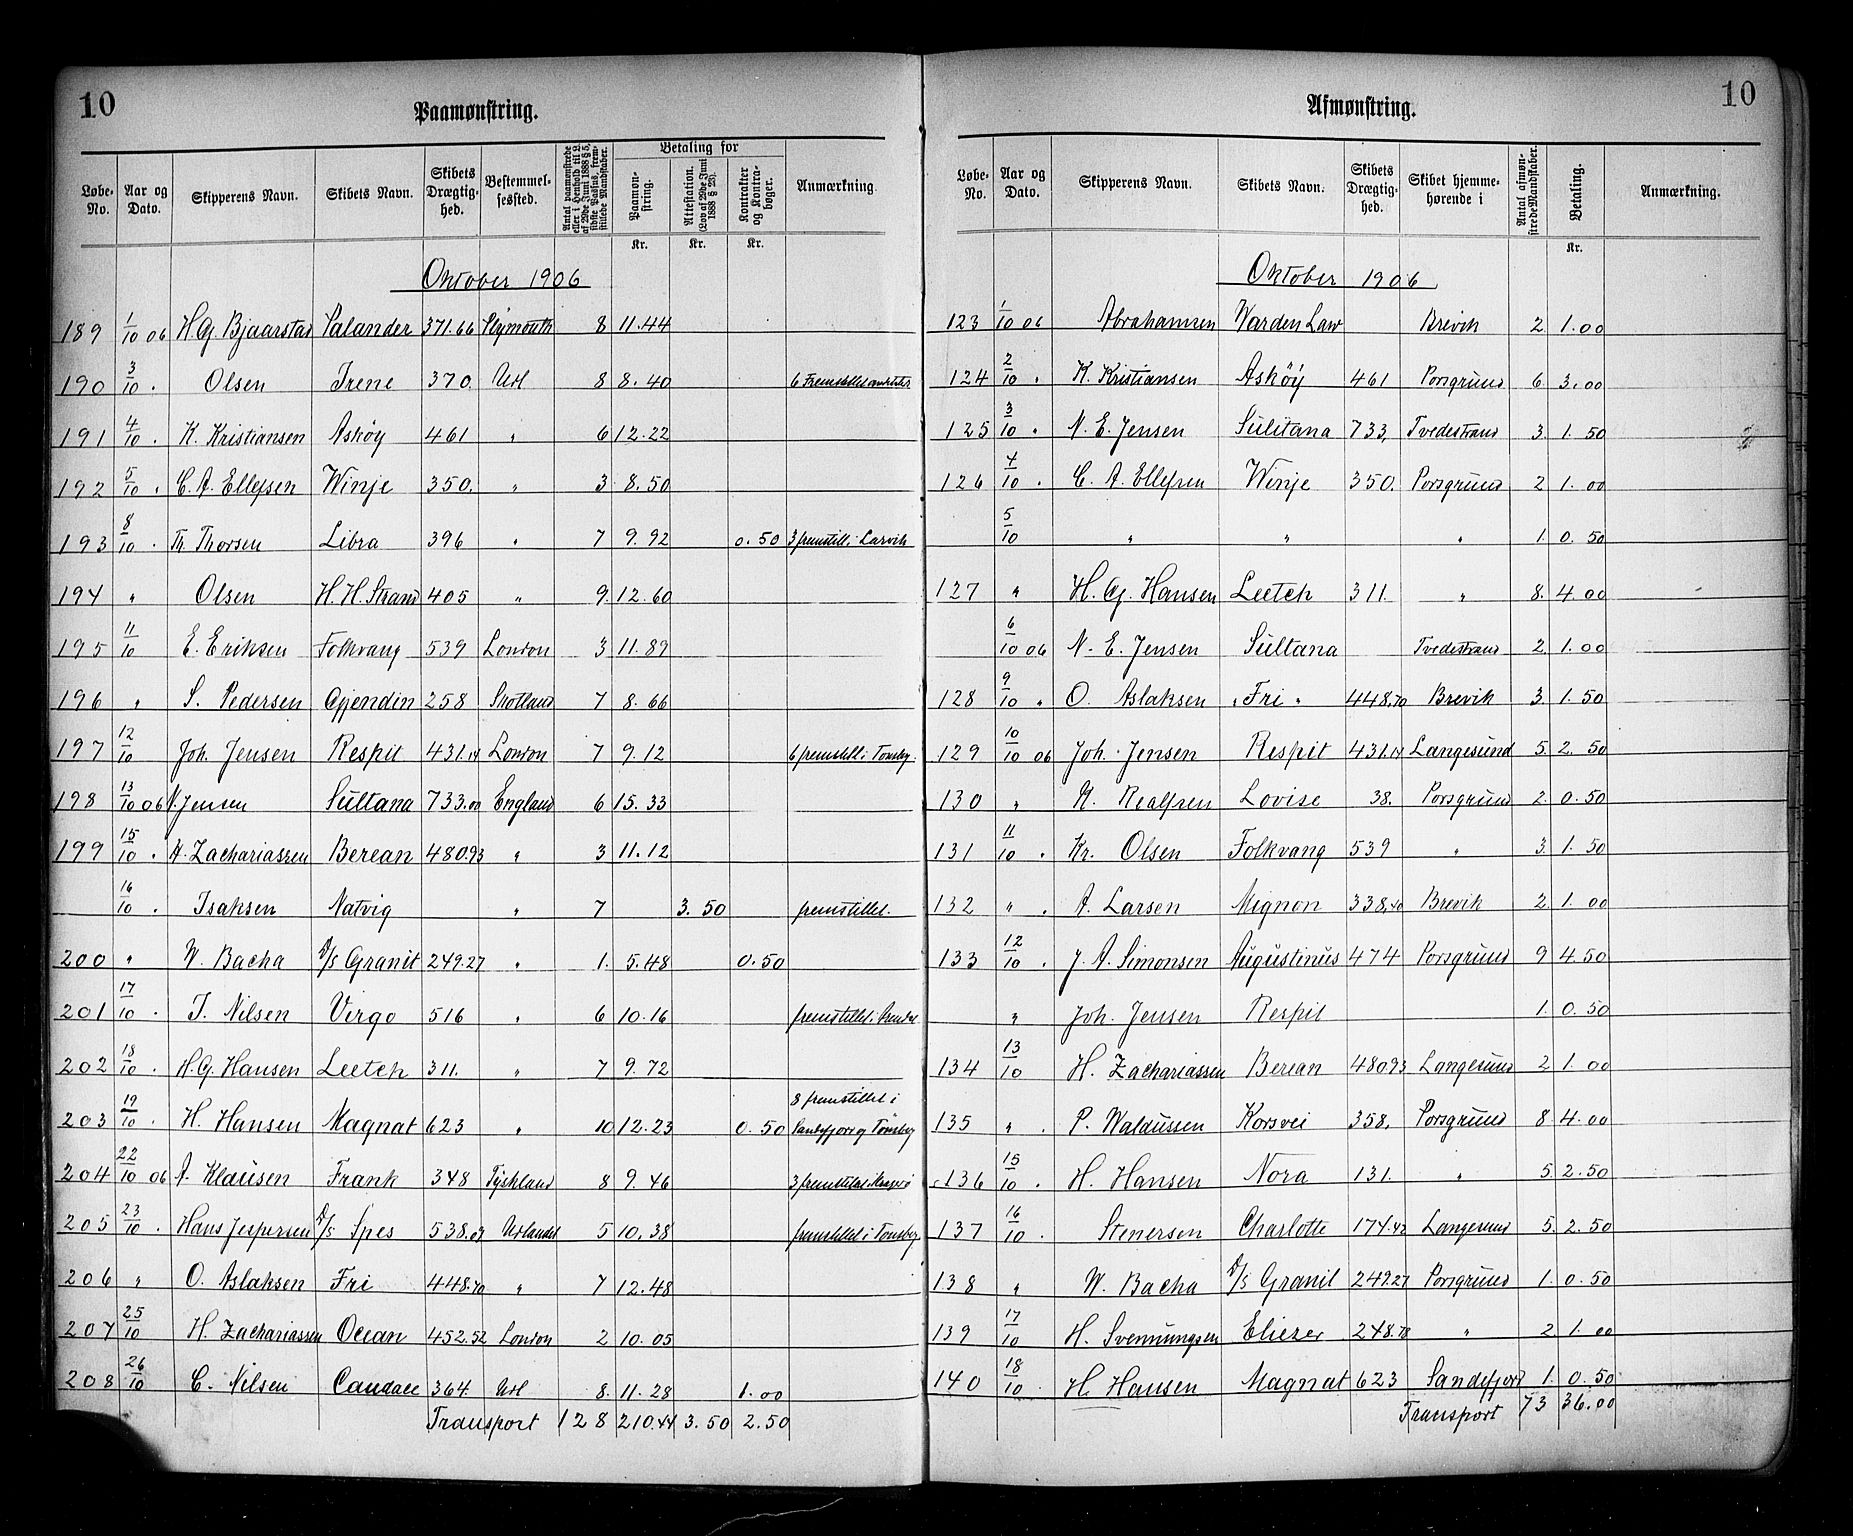 10
Paamønstring.
Løbe-No. | Aar og Dato. | Skipperens Navn. | Skibets Navn. | Skibets Drægtighed. | Bestemmelsessted. | Antal paamønstrede eller i Henhold til L. af 29de Juni 1888 § 5, sidste Passus, fremstillede Mandskaber. | Betaling for | Paamønstring. | Attestation. (Lov af 29de Juni 1888 § 23). | Kontrakter og Kontrabøger. | Anmærkning.
Kr. | Kr. | Kr.
Oktober 1906
189 | 1/10 06 | H. G. Bjaarstad | Salander | 371.66 | Plymouth | 8 | 11.44
190 | 3/10 . | Olsen | Irene | 370. | Udl | 8 | 8.40 | 6 Fremstillet
191 | 4/10 . | K. Kristiansen | Askøy | 461 | " | 6 | 12.22
192 | 5/10 . | C. A. Ellefsen | Winje | 350. | " | 3 | 8.50
193 | 8/10 . | Th. Thorsen | Libra | 396 | " | 7 | 9.92 | 0.50 | 3 fremstill. i Larvik
194 | " | Olsen | H. H. Strand | 405 | " | 9. | 12.60
195 | 11/10 | E. Eriksen | Folkvang | 539 | London | 3 | 11.89
196 | " | S. Pedersen | Gjendin | 258 | Skotland | 7 | 8.66
197 | 12/10 | Joh. Jensen | Respit | 431.14 | London | 7 | 9.12 | 6 fremstill. i Tønsbg.
198 | 13/10 06 | N. Jensen | Sultana | 733.00 | England | 6 | 15.33
199 | 15/10 . | H. Zachariassen | Berean | 480.93 | " | 3 | 11.12
16/10 . | Isaksen | Natvig | " | 7 | 3.50 | fremstillet.
200 | " | W. Bacha | D/S Granit | 249.27 | " | 1. | 5.48 | 0.50
201 | 17/10 . | T. Nilsen | Virgo | 516 | " | 6 | 10.16 | fremstillet i
202 | 18/10 . | H. G. Hansen | Leetch | 311. | " | 7 | 9.72
203 | 19/10 . | H. Hansen | Magnat | 623 | " | 10 | 12.23 | 0.50 | 8 fremstillet i Sandefjord og Tønsbg
204 | 22/10 06 | A. Klausen | Frank | 348 | Tyskland | 8 | 9.46 | 3 fremstillet i
205 | 23/10 . | Hans Jespersen | D/S Spes | 538.09 | Udlandet | 5 | 10.38 | fremstillet i Tønsbg
206 | " | O. Aslaksen | Fri | 448.70 | " | 7 | 12.48
207 | 25/10 | H. Zachariassen | Ocean | 452.52 | London | 2 | 10.05
208 | 26/10 | C. Nilsen | Candace | 364. | Udl | 8. | 11.28 | 1.00
Transport | 128 | 210.44 | 3.50 | 2.50
10
Afmønstring.
Løbe-No. | Aar og Dato. | Skipperens Navn. | Skibets Navn. | Skibets Drægtighed. | Skibet hjemmehørende i | Antal afmønstrede Mandskaber. | Betaling. | Anmærkning.
Kr.
Oktober 1906
123 | 1/10 06 | Abrahamsen | Warden Law | Brevik | 2 | 1.00
124 | 2/10 . | K. Kristiansen | Askøy | 461 | Porsgrund | 6 | 3.00
125 | 3/10 . | N. E. Jensen | Sulitana | 733, | Tvedestrand | 3. | 1.50
126 | 4/10 . | C. A. Ellefsen | Winje | 350. | Porsgrund | 2 | 1.00
5/10 | " | " | " | 1. | 0.50
127 | " | H. G. Hansen | Leetch | 311. | " | 8. | 4.00
6/10 06 | N. E. Jensen | Sultana | Tvedestrand | 2. | 1.00
128 | 9/10 " | O. Aslaksen | " Fri " | 448,70 | Brevik | 3. | 1.50
129 | 10/10 06 | Joh. Jensen | Respit | 431.14 | Langesund | 5. | 2.50
130 | " | K. Realfsen | Lovise | 38. | Porsgrund | 2. | 0.50
131 | 11/10 . | Kr. Olsen | Folkvang | 539 | " | 3. | 1.50
132 | " . | A. Larsen | Mignon | 338,40 | Brevik | 2. | 1.00
133 | 12/10 . | J. A. Simonsen | Augustinus | 474 | Porsgrund | 9 | 4.50
" | Joh. Jensen | Respit | 1. | 0.50
134 | 13/10 | H. Zachariassen | Berean | 480.93 | Langesund | 2 | 1.00
135 | " . | P. Waldussen | Korsvei | 358, | Porsgrund | 8 | 4.00
136 | 15/10 . | H. Hansen | Nora | 131. | " | 5. | 2.50
137 | 16/10 . | Stenersen | Charlotte | 174.42 | Langesund | 5. | 2.50
138 | " | W. Bacha | D/S Granit | 249.27 | Porsgrund | 1. | 0.50
139 | 17/10 | H. Svennungsen | Eliezer | 248.78 | " | 2. | 1.00
140 | 18/10 . | H. Hansen | Magnat | 623 | Sandefjord | 1. | 0.50
Transport | 73 | 36.00